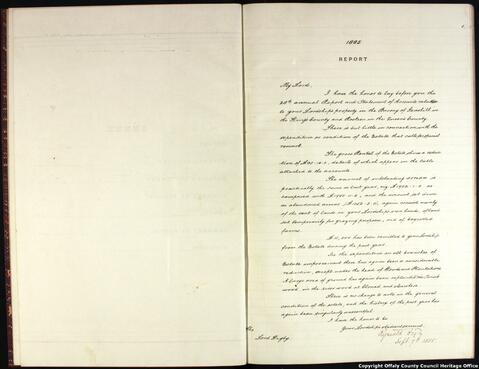 1885
REPORT
My Lord,
I have the honor to lay before you the
annual Report and Statement of Accounts
to your Lordship's property in the Barony of Geashill in
the King's County and in the Queen's County.
There is but little in connection with the
expenditure or condition of the Estate that calls for special
remark.
The gross Rental of the Estate shows a
details of which appear in the table
attached to the accounts.
The amount of outstanding arrears is
practically the same as last year,
compared with and the amount set down
as abandoned arrears again consists mainly
of the rent of land in your Lordship's own hands,
set temporarily for grazing purposes, and of
farms.
has been remitted to your Lordship
from the Estate during the past year.
In the expenditure on all branches of
Estate improvement there has again been a considerable
reduction, except under the head of Woods and Plantations.
A large area of ground has again been
wood, in the
There is no change to note in the general
condition of the estate, and the history of the past year has
again been singularly uneventful.
I have the honor to be
Your Lordship's obedient servant,
Reginald Digby
Lord Digby.
Copyright Offaly County Council Heritage Office